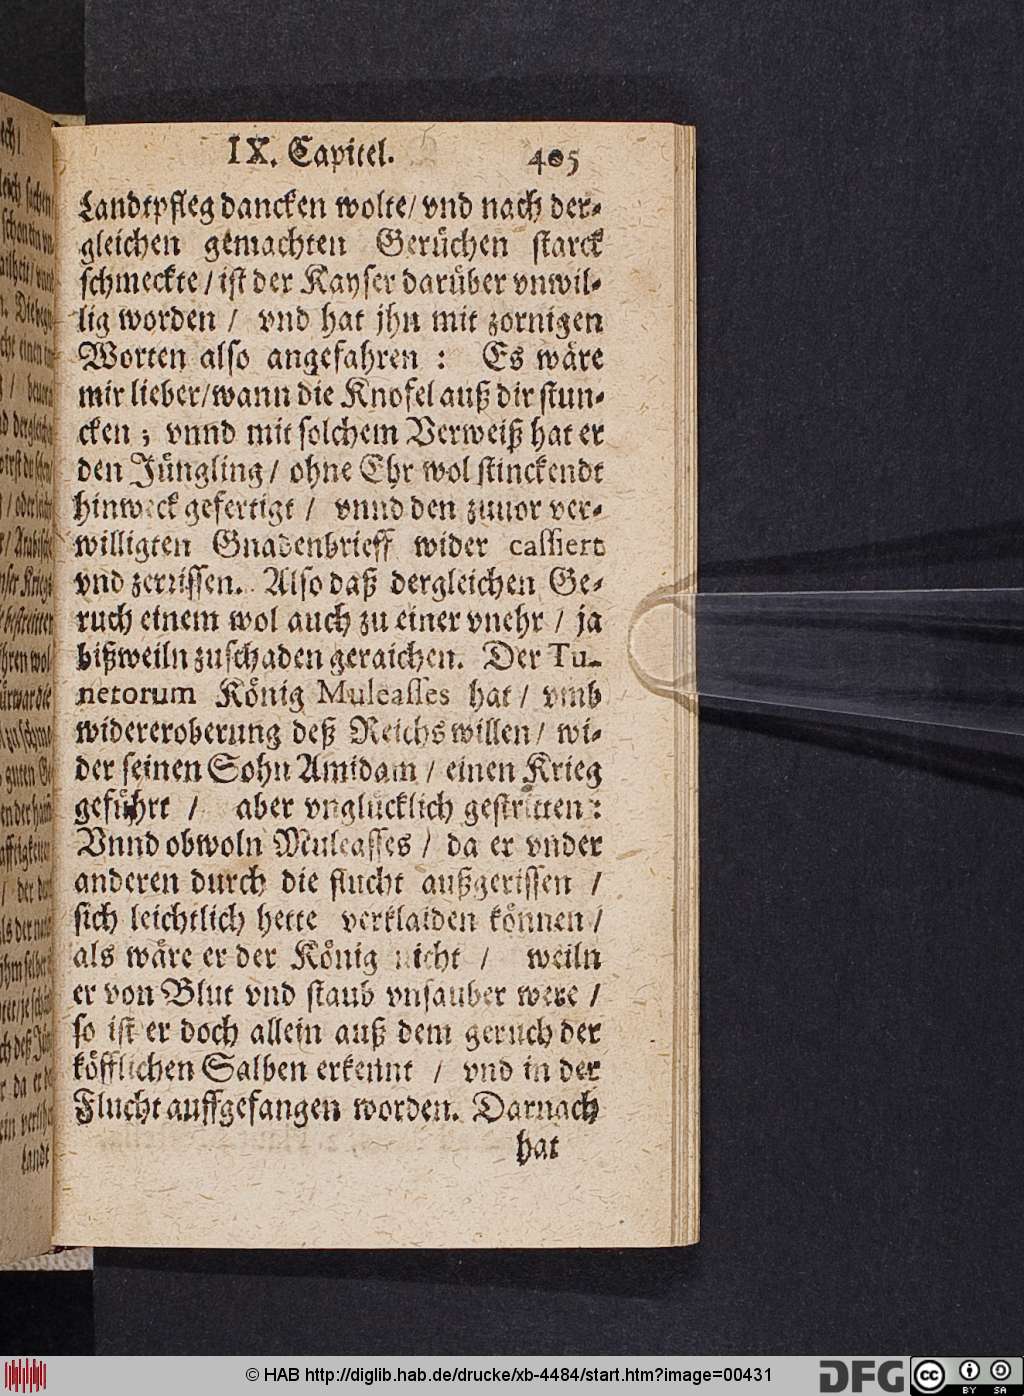 IX. Capitel. 405
Landtpfleg dancken wolte/ vnd nach der-
gleichen gemachten Gerüchen starck
schmeckte / ist der Kayser darüber vnwil-
lig worden / vnd hat jhn mit zornigen
Worten also angefahren : Es wäre
mir lieber/wann die Knofel auß dir stun-
cken ; vnnd mit solchem Verweiß hat er
den Jüngling / ohne Ehr wol stinckendt
hinweck gefertigt / vnnd den zuuor ver-
willigten Gnadenbrieff wider cassiert
vnd zerrissen. Also daß dergleichen Ge-
ruch einem wol auch zu einer vnehr / ja
bißweiln zuschaden geraichen. Der Tu-
netorum König Muleasses hat / vmb
widereroberung deß Reichs willen / wi-
der seinen Sohn Amidam / einen Krieg
geführt / aber vnglücklich gestritten :
Vnnd obwoln Muleasses / da er vnder
anderen durch die flucht außgerissen /
sich leichtlich hette verklaiden können /
als wäre er der König nicht / weiln
er von Blut vnd staub vnsauber were /
so ist er doch allein auß dem geruch der
köfflichen Salben erkennt / vnd in der
Flucht auffgefangen worden. Darnach
hat
© HAB http://diglib.hab.de/drucke/xb-4484/start.htm?image=00431
DFG
cc
BY SA